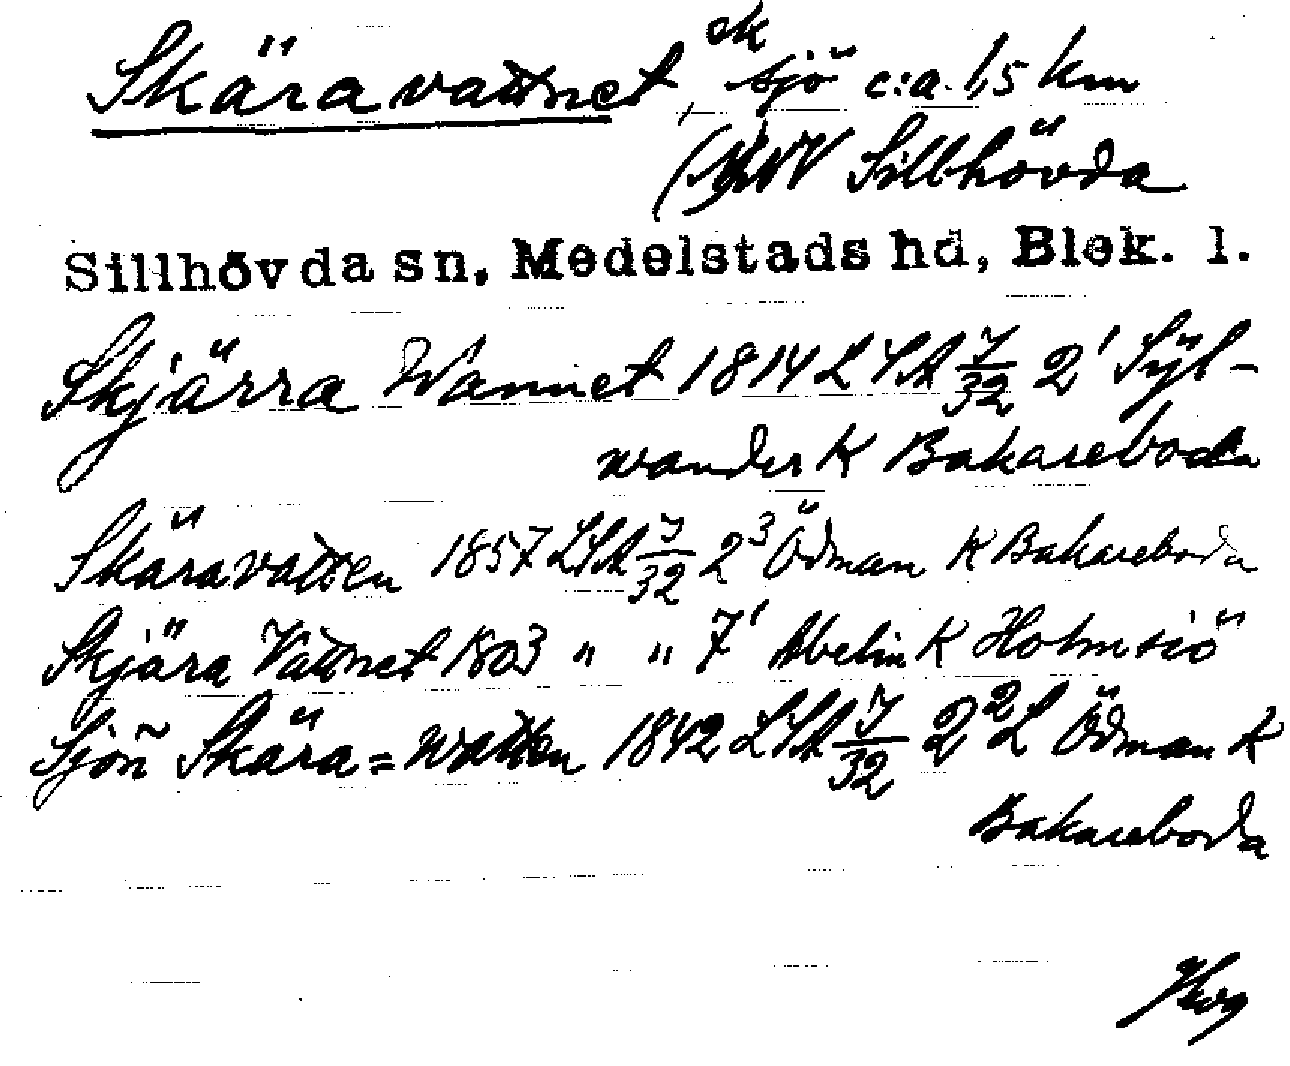 Skäravattnet, ek sjö c:a 1,5 km
NV Sillhövda
Sillhövda sn, Medelstads hd, Blek. l.
Skjärra Wannet 1814 LSA 7/32 2¹ Syl-
wander K Bakareboda
Skäravatten 1857 LSA 7/32 2³ Ödman K Bakareboda
Skjära Vattnet 1803 " " 7¹ Abelin K Holmsiö
Sjön Skära=watten 1842 LSA 7/32 2² L Ödman K
Bakareboda